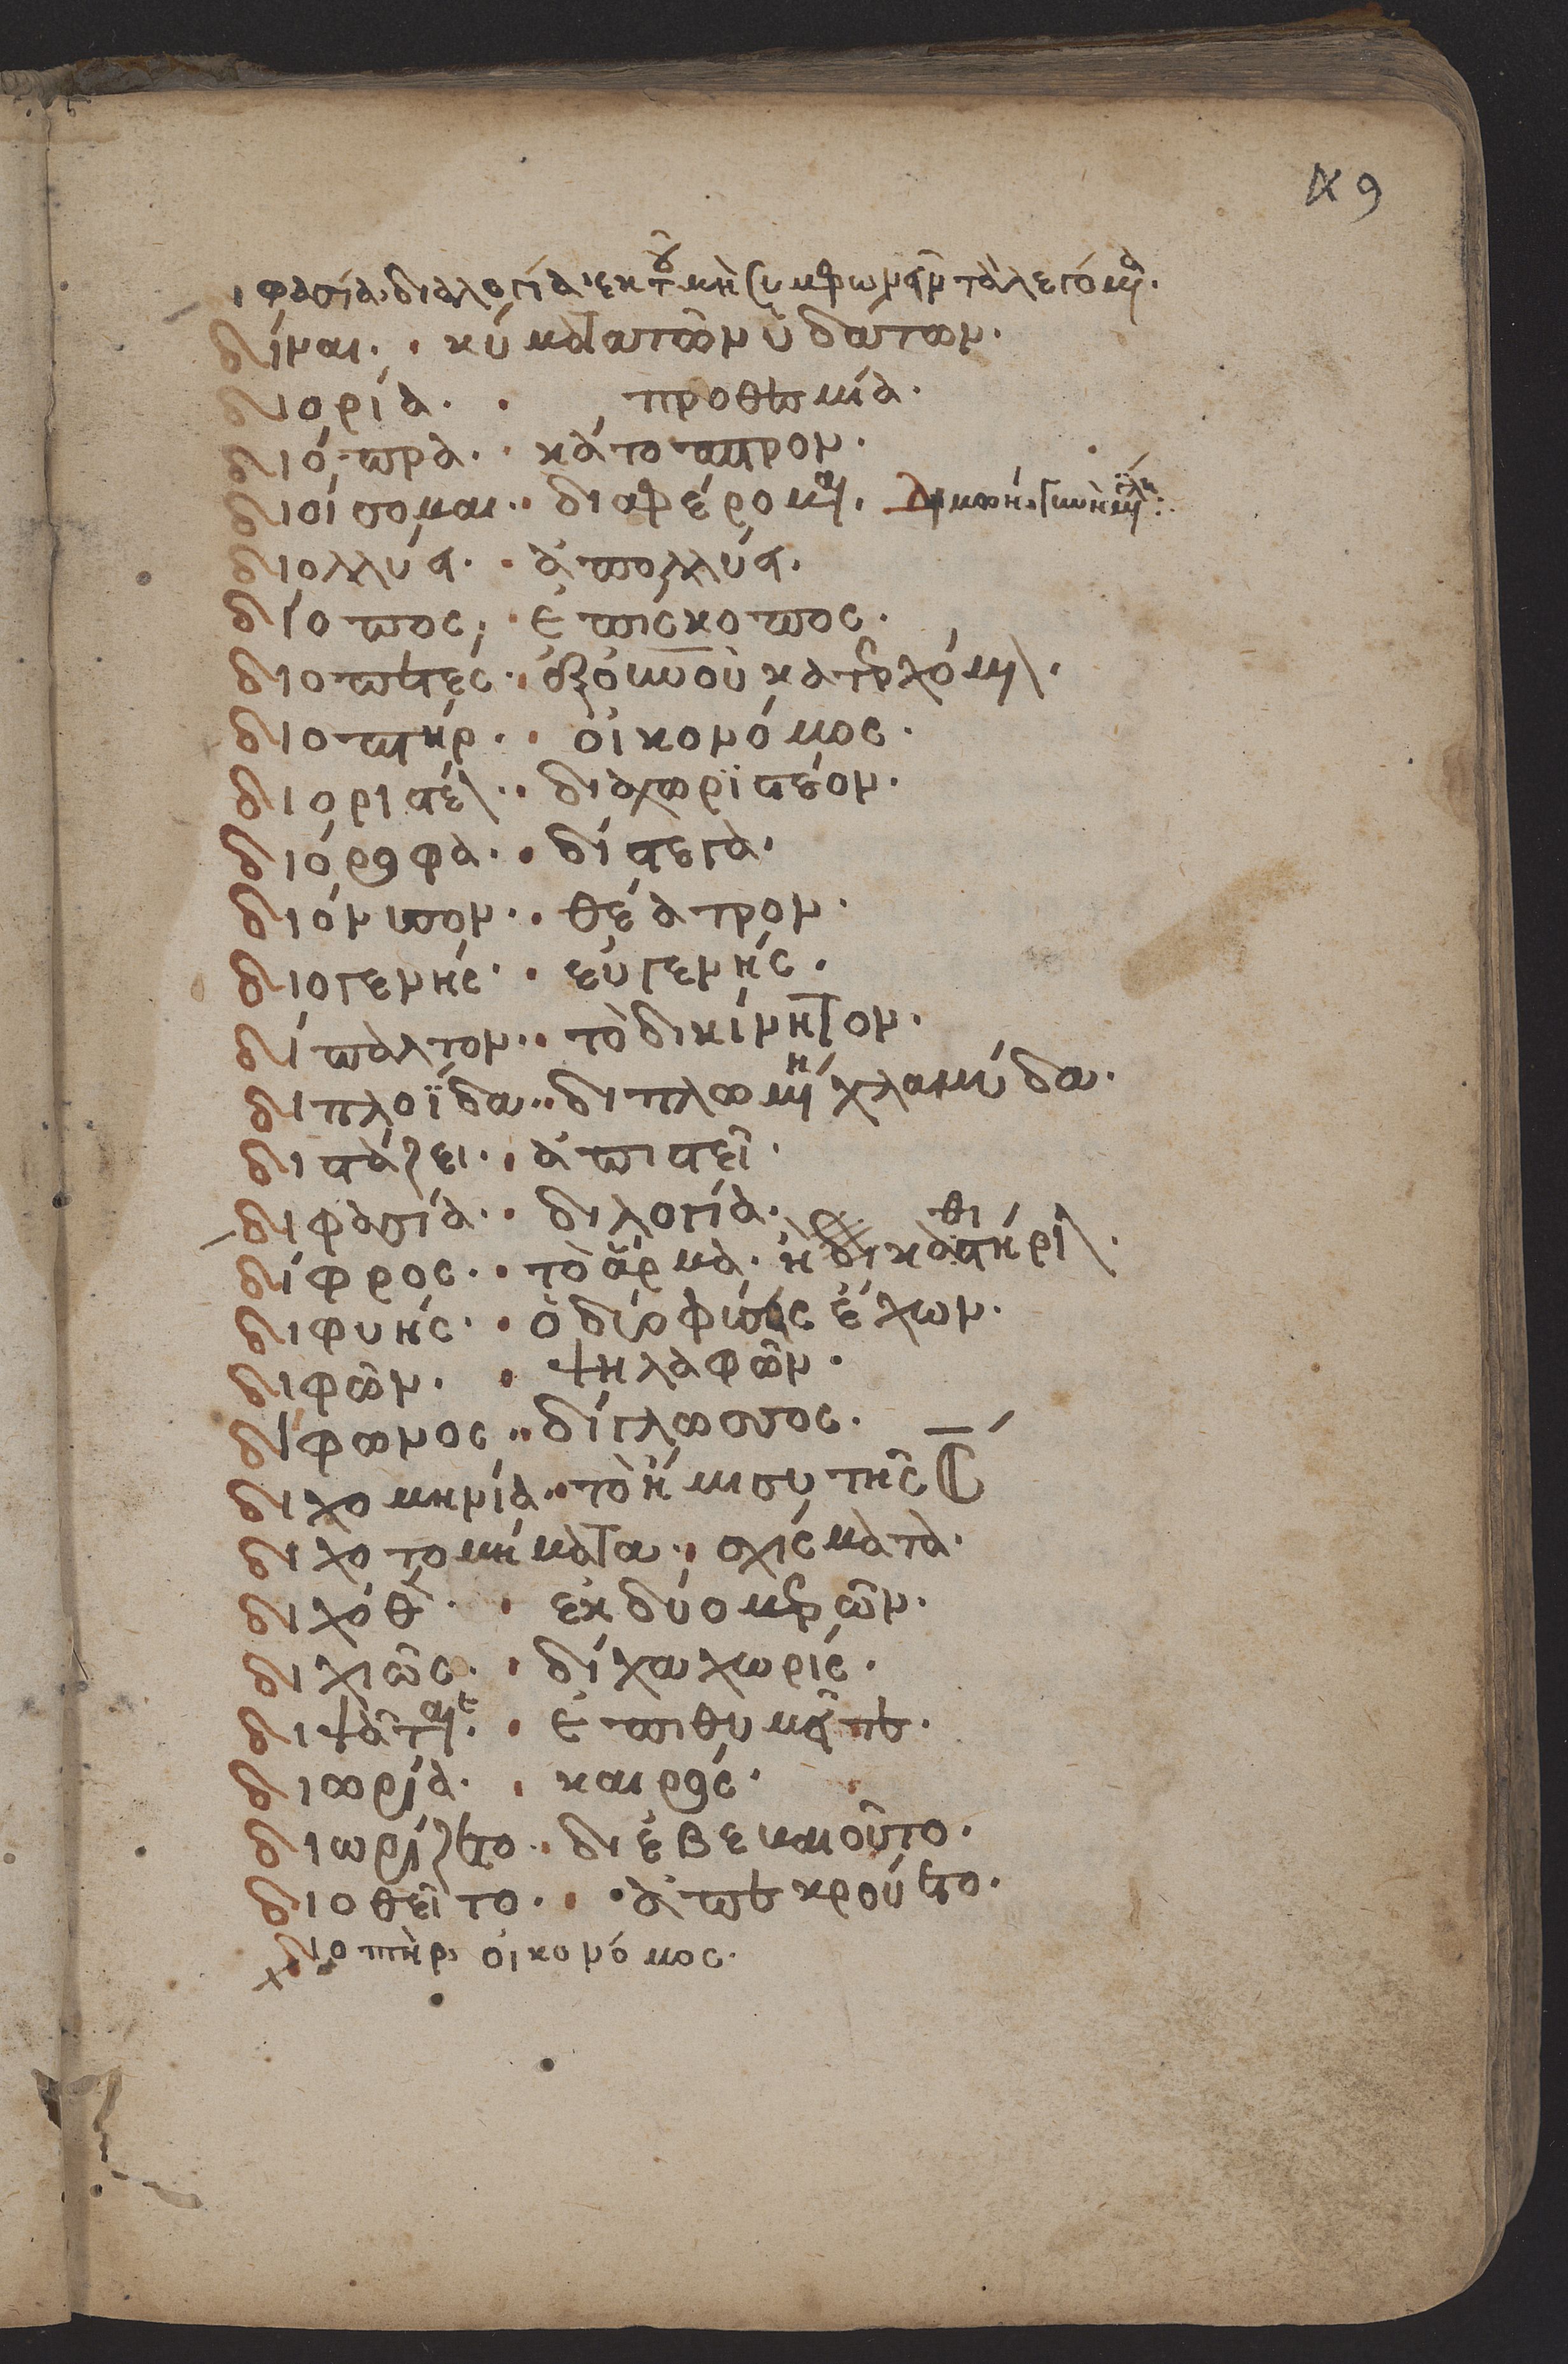 49
ιφασία· διαλογία· ἐκ τοῦ μὴ συμφωνεῖν τὰ λεγόμενα·
δίναι·· κύματα τῶν ὑδάτων·
διορία·· προθεσμία·
διόπτρα·· κάτοπτρον·
διοίσομαι·· διαφέρομαι·
διολλύει·· ἀπολλύει·
δίοπος·· ἐπίσκοπος·
διοπετές·· ἐξ οὐνοῦ κατερχόμενον·
διοπτήρ·· οἰκονόμος·
διοριστέον·· διαχωριστέον·
διόροφα·· δίστεγα·
διόνυσον·· θέατρον·
διογενής·· εὐγενής·
δίπαλτον·· τὸ δικίνητον·
διπλοΐδα·· διπλωμένην χλαμύδα·
διστάζει·· ἀπιστεῖ·
διφασία·· διλογία·
δίφρος·· τὸ ἅρμα· ἢ δικαστήριον·
διφυής·· ὁ δύο φύσεις ἔχων·
διφῶν·· ψηλαφῶν·
δίφωνος·· δίγλωσσος·
διχομηνία·· τὸ ἥμισυ τῆς ☾
διχοτομήματα·· σχίσματα·
διχόθεν·· ἐκ δύο μερῶν·
διχῶς·· δίχα χωρίς·
διψᾶται·· ἐπιθυμεῖται·
διωρία·· καιρός·
διωρίζετο·· διεβεβαιοῦτο·
διοθεῖτο·· ἀπεκρούετο·
διοπτὴρ· οἰκονόμος·